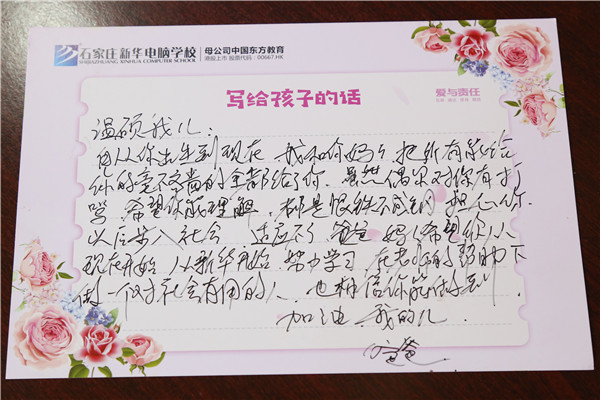 石家庄新华电脑学校
SHIJIAZHUANG XINHUA COMPUTER SCHOOL
母公司中国东方教育
港股上市 股票代码：00667.HK
写给孩子的话
爱与责任
温硕我儿：
自从你出生到现在 我和你妈妈 把所有能给
你的毫不吝啬的全部给了你．虽然偶尔对你有打
骂．希望你能理解．都是恨铁不成钢 担心你
以后步入社会 适应不了 爸爸 妈妈希望你从
现在开始 从新华开始 努力学习 在老师的帮助下
做一仪才社会有用的人．也相信你能做到．
加油．我的儿．
爸爸